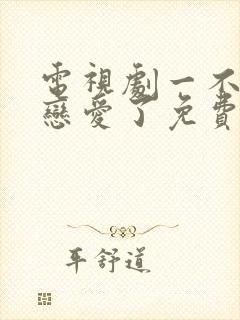 電視劇一不
戀愛了免費
平舒道